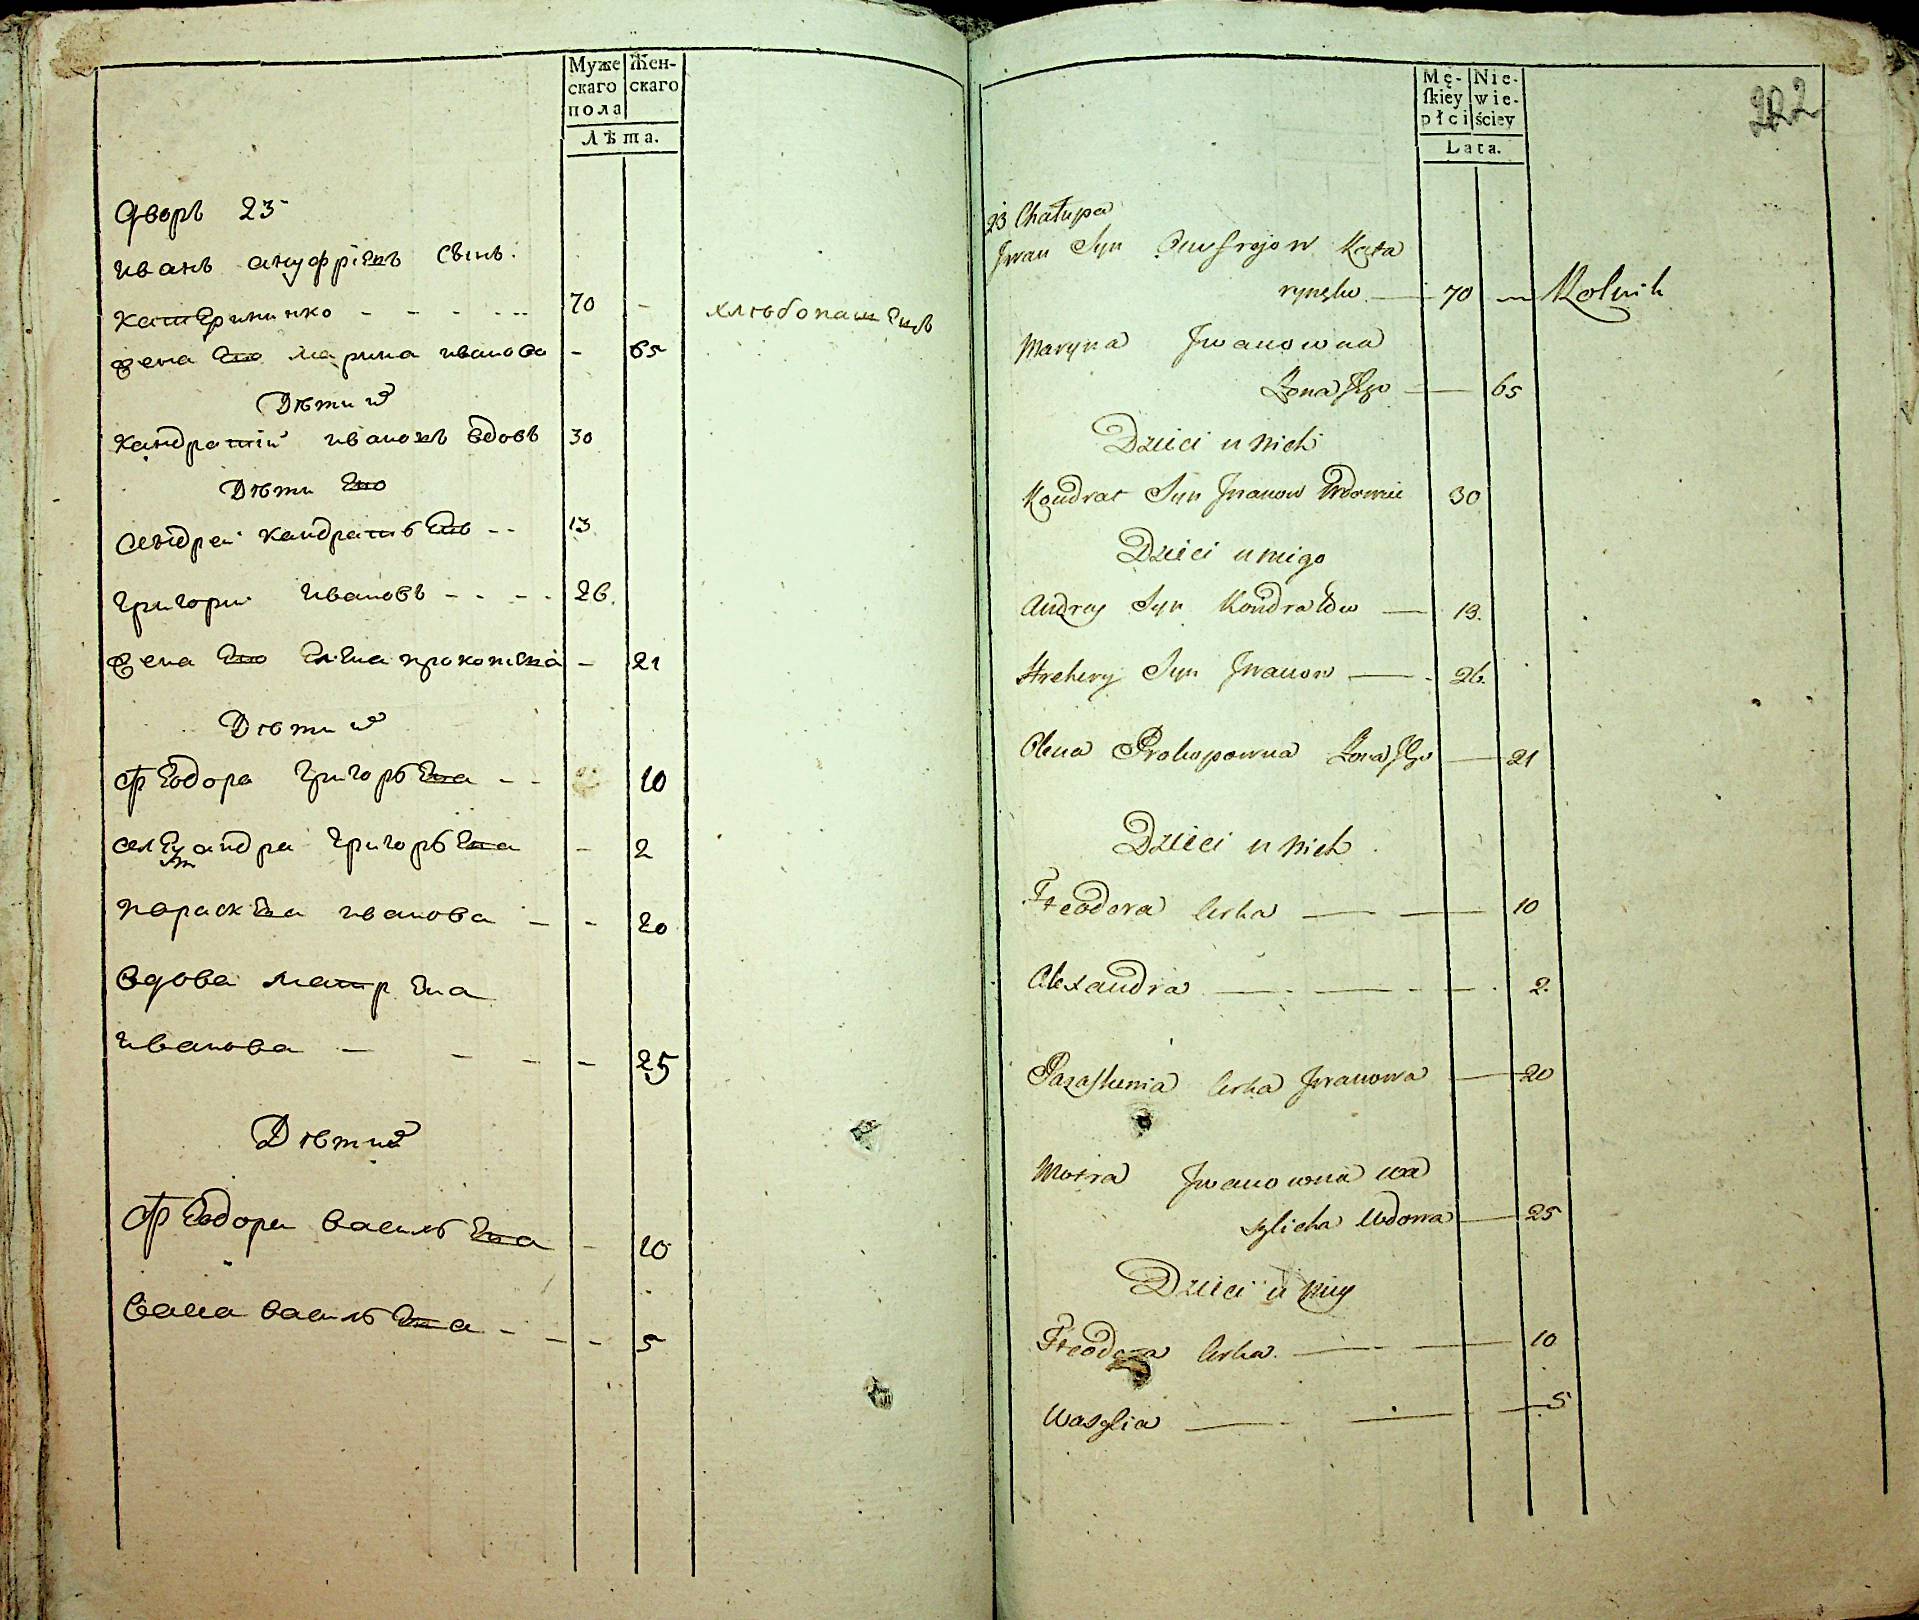 Муже Жен-
скаго скаго
пола
Лѣта.
Дворъ 23
иванъ ануфрїевъ сынъ
катериничко - - - - - 70 - хлѣбопашецъ
жена его марина иванова - 65
Дѣти ихъ
кандратїй ивановъ вдовъ 30
Дѣти его
андрей кандратьевъ - - 13
григорий ивановъ - - - - 26.
жена его елена прокопьева - 21
Дѣти ихъ
феодора григорьева - - 10
александра григорьева - 2
параскева иванова - - 20
вдова матрена
иванова - - - - 25
Дѣти ихъ
феодора васильева - 10
васса васильева - - - 5
Mę- Nie-
ſkiey wie-
płci ściey
Lata.
222
23 Chałupa
Jwan Syn Onufryjow Kata
rynęko — 70 — Rolnik
Maryna Jwanowna
Żona Jego — 65
Dzieci u nich
Kondrat Syn Jwanow Wdowiec 30
Dzieci u niego
Andrey Syn Kondratów — 13.
Hrehory Syn Jwanow — 26.
Olena Prokopowna Żona Jego — 21
Dzieci u nich
Fteodora Corka — — 10
Alexandra — — — 2.
Paraskiewia Corka Jwanowa — 20
Motra Jwanowna wa
sylicha Wdowa — 25
Dzieci u niey
Fteodora Corka. — — 10
Wasylia — — — 5